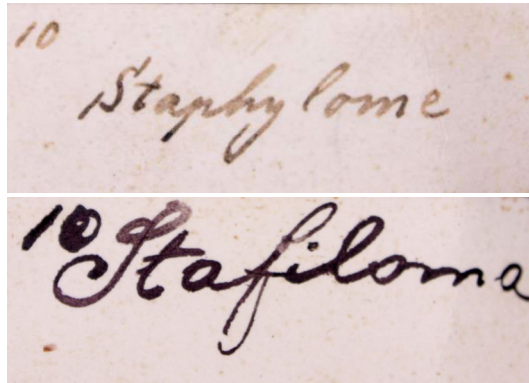 10
Staphylome
10 Stafiloma